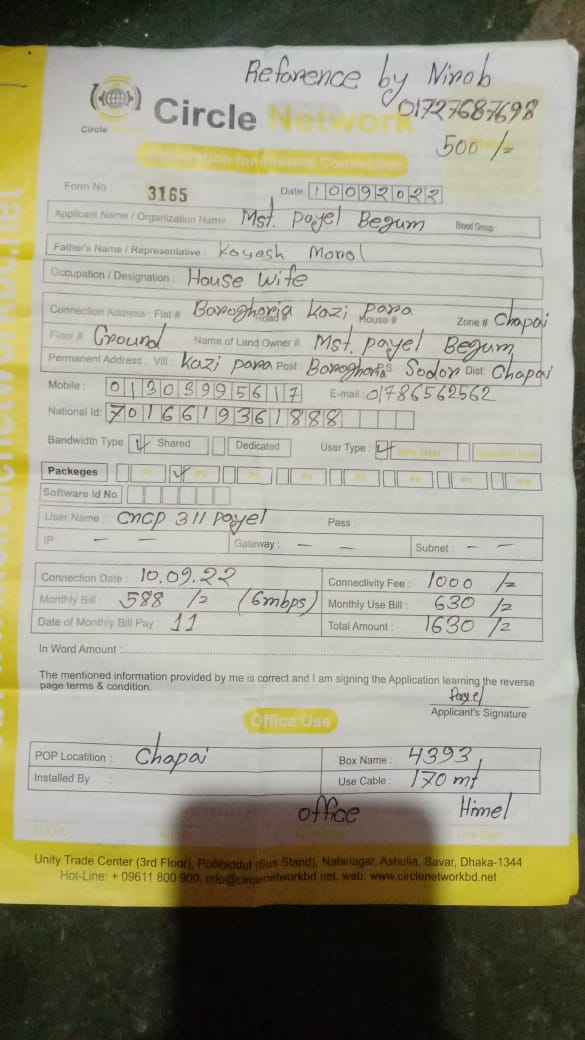 Reference by Nirob
01727687698
500 /=
Circle Network
Circle
Application for Internet Connection
Form No : 3165 Date: 10092022
Applicant Name / Organization Name : Mst. Payel Begum Blood Group :
Father's Name / Representative : Kayesh Morol
Occupation / Designation : House Wife
Connection Address : Flat # Baroghoria Road # Kazi Para House # Zone # Chapai
Floor # Ground Name of Land Owner # Mst. Payel Begum
Permanent Address : Vill : Kazi para Post : Baroghoria PS Sodor Dist: Chapai
Mobile : 01303995617 E-mail : 01786562562
National Id: 7016619361888
Bandwidth Type Shared Dedicated User Type : New User
Packeges P1 P2 P3 P4 P5 P6 P7 P8
Software Id No
User Name : CNCP 311 Payel Pass :
IP : - - Gateway : - - Subnet : - -
Connection Date : 10.09.22 Connectivity Fee : 1000 /=
Monthly Bill : 588 /= (6mbps) Monthly Use Bill : 630 /=
Date of Monthly Bill Pay : 11 Total Amount : 1630 /=
In Word Amount :
The mentioned information provided by me is correct and I am signing the Application learning the reverse
page terms & condition.
Payel
Applicant's Signature
Office Use
POP Locatition : Chapai Box Name : 4393
Installed By : Use Cable : 170 mt
office Himel
Line Man
Unity Trade Center (3rd Floor), Pallibiddut (Bus Stand), Nabinagar, Ashulia, Savar, Dhaka-1344
Hot-Line: + 09611 800 900, info@circlenetworkbd.net, web: www.circlenetworkbd.net